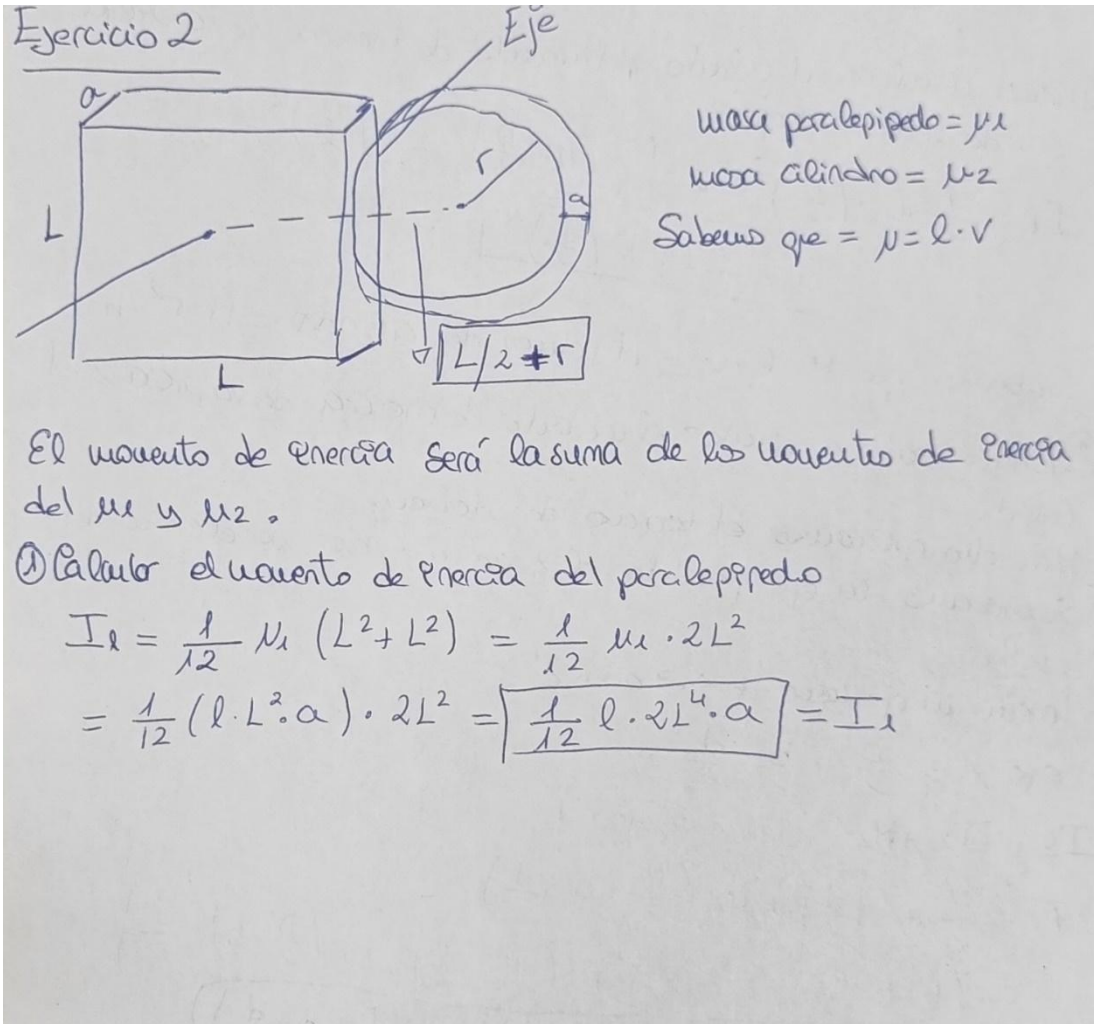 Ejercicio 2
Eje
a
L
r
a
L
L/2 + r
masa paralepipedo = μ1
masa cilindro = μ2
Sabemos que = μ = ρ · V
El momento de enercia será la suma de los momentos de enercia
del μ1 y μ2.
① Calcular el momento de enercia del paralepipedo
I1 = 1/12 μ1 (L² + L²) = 1/12 μ1 · 2L²
= 1/12 (ρ · L² · a) · 2L² = 1/12 ρ · 2L⁴ · a = I1